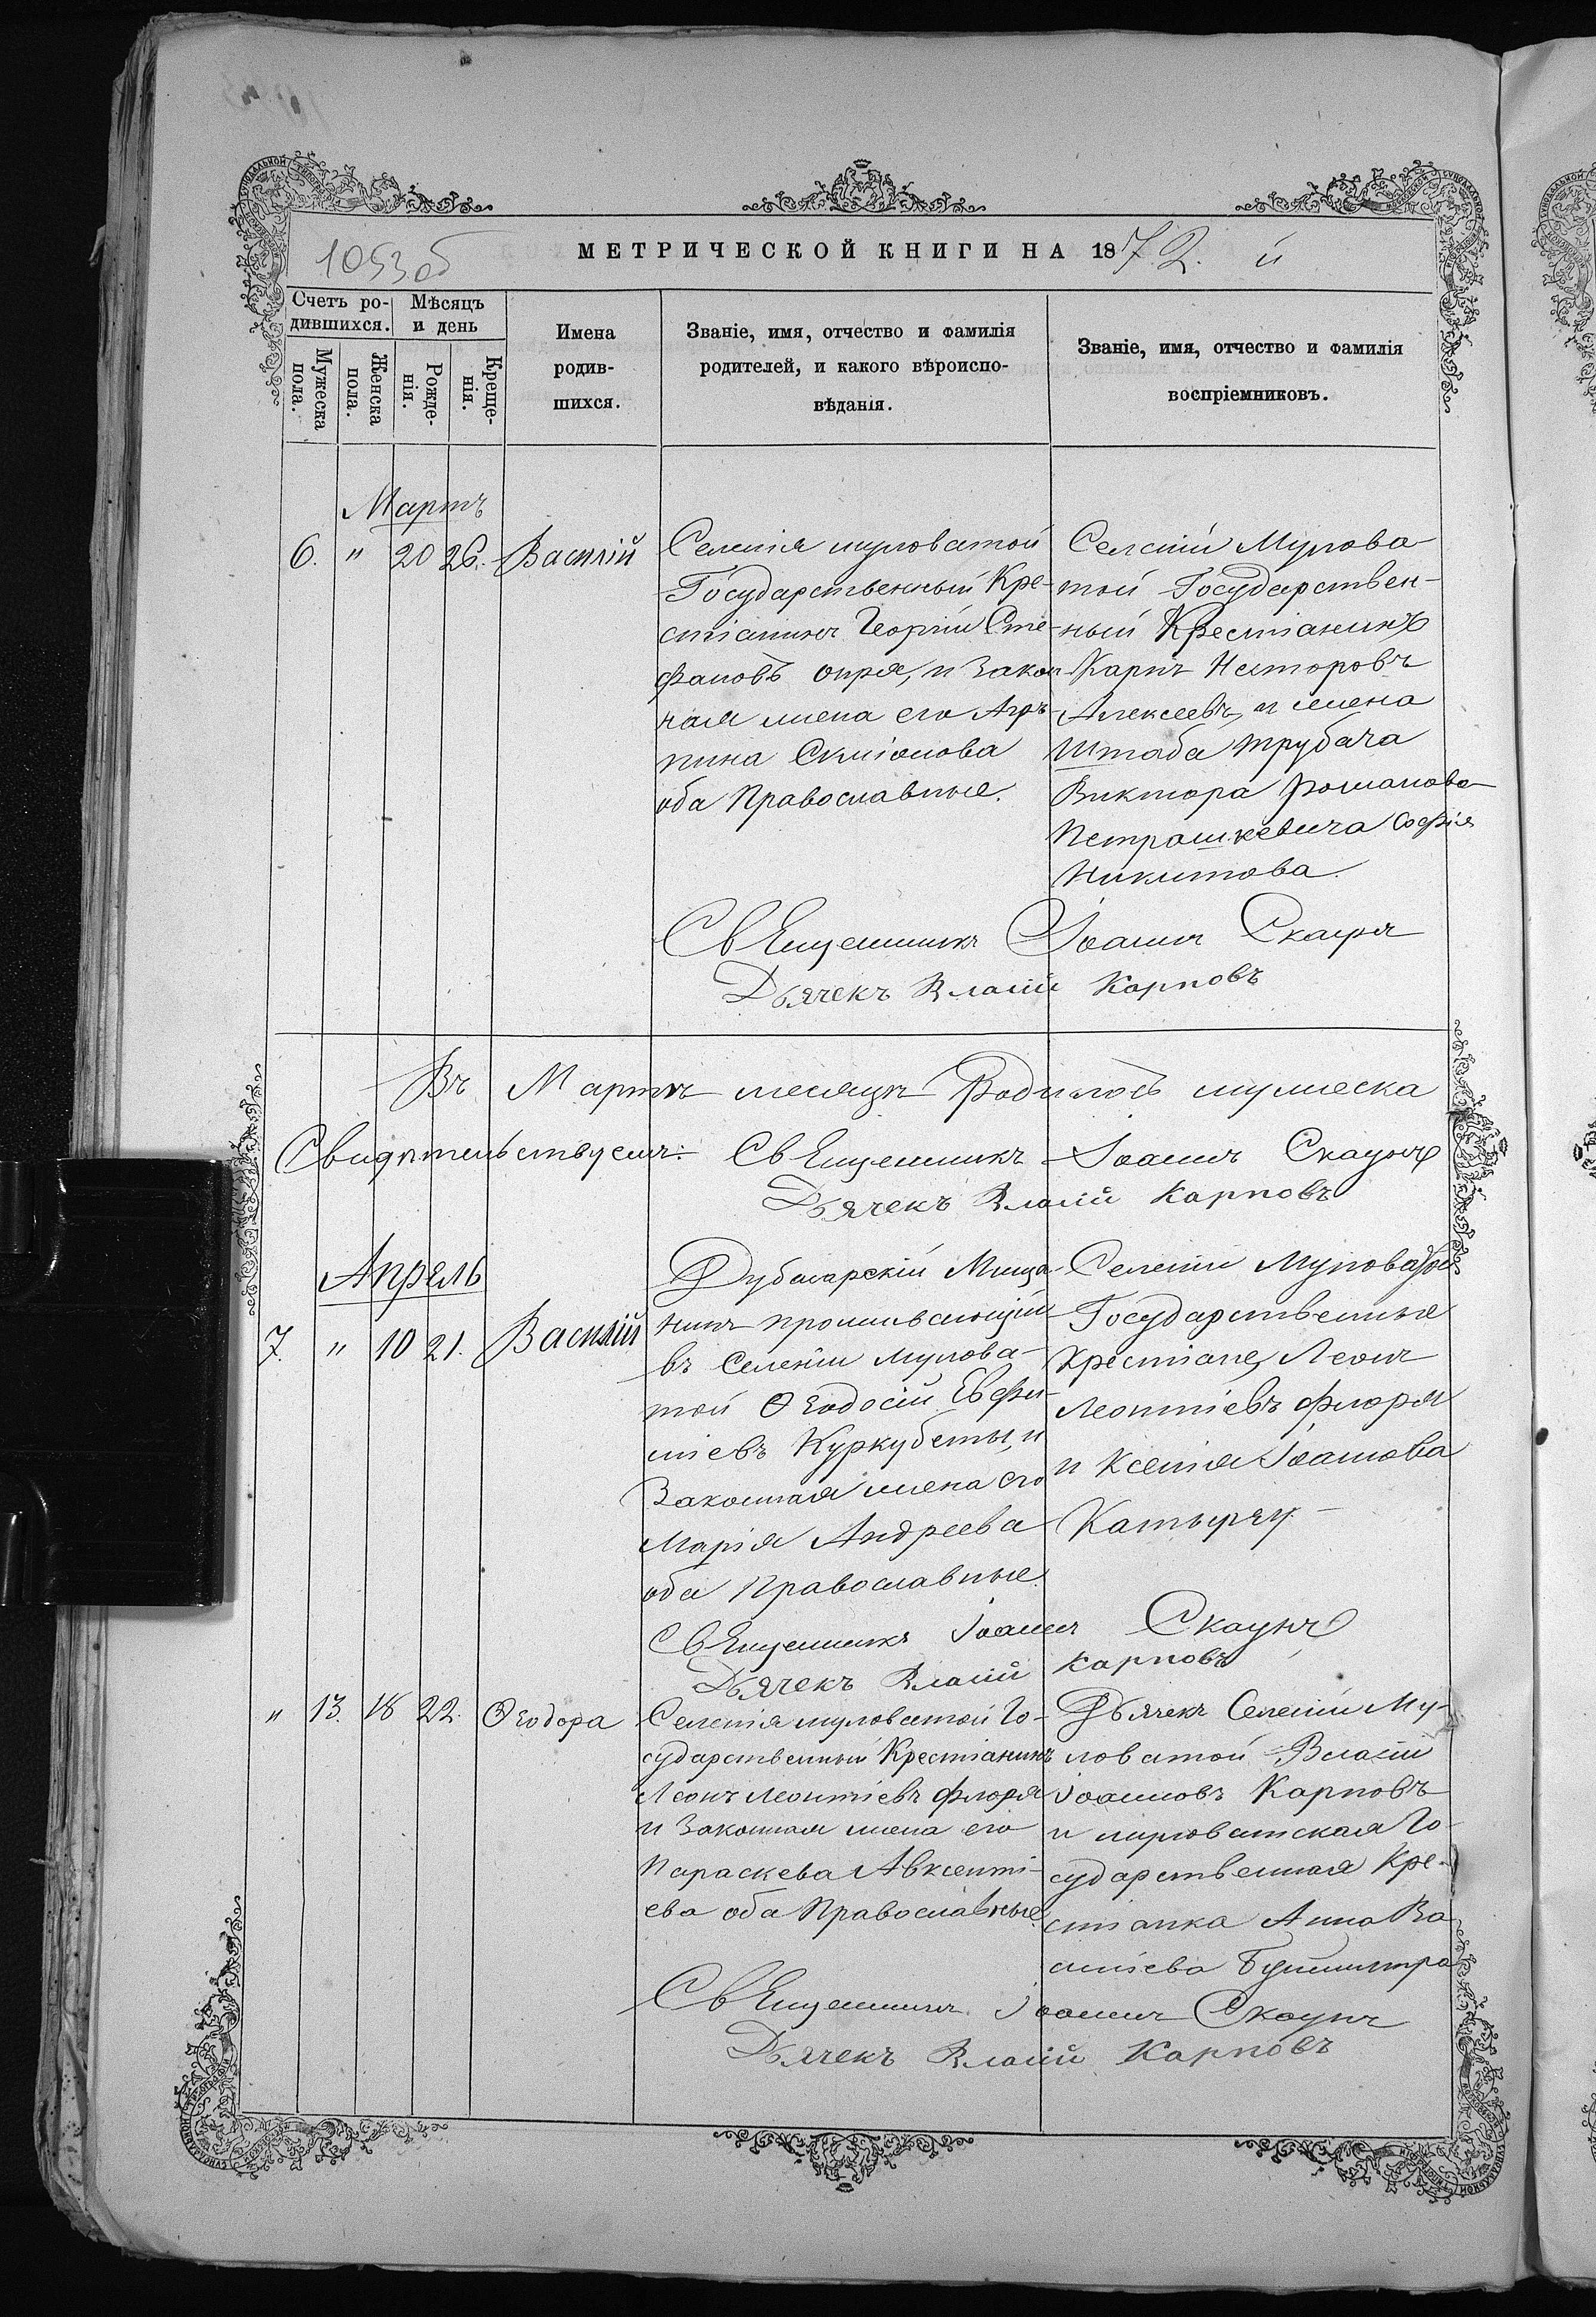 1053 об
МЕТРИЧЕСКОЙ КНИГИ НА 1872. й
Счетъ ро-
дившихся.
Мѣсяцъ
и день
Мужеска
пола.
Женска
пола.
Рожде-
нія.
Креще-
нія.
Имена
родив-
шихся.
Званіе, имя, отчество и фамилія
родителей, и какого вѣроиспо-
вѣданія.
Званіе, имя, отчество и фамилія
воспріемниковъ.
Мартъ
6. " 20 26. Василій
Селенія муловатой
Государственный Кре-
стіанинъ Георгій Сте-
фановъ опря, и Закон
ная жена его Агри
пина Симіонова
оба Православные.
Селеніи Мулова-
той Государствен-
ный Крестіанинъ
Карпъ Несторовъ
Алексеевъ, и жена
Штаба трубача
Виктора Романова
Петрашкевича София
Никитова
СвЯщенникъ Іоаннъ Скаунъ
Дьячекъ Власій Карповъ
Въ Мартѣ месяцѣ Родилось мужеска
Свидѣтельствуемъ: СвЯщенникъ Іоаннъ Скаунъ
Дьячекъ Власій Карповъ
Апрель
7. " 10 21. Василій
Дубосарскій Меща-
нинъ проживающій
въ Селеніи мулова-
той Ѳеодосій Евфи-
міевъ Куркубеты, и
Законная жена его
Марія Андреева
оба Православные.
Селеніи Муловатой
Государственные
Крестіане, Леонъ
Леонтіевъ флоря
и Ксенія Іоаннова
Катыряу
СвЯщенникъ Іоаннъ Скаунъ
Дьячекъ Власій Карповъ
" 13. 16 22. Ѳеодора
Селенія муловатой Го-
сударственный Крестіанинъ
Леонъ Леонтіевъ флоря
и Законная жена его
Параскева Авксенті-
ева оба Православные
Дьячекъ Селеніи Му-
ловатой Власій
Іоанновъ Карповъ
и муловатская Го-
сударственная Кре-
стіанка Анна Ва
силіева
СвЯщенникъ Іоаннъ Скаунъ
Дьячекъ Власій Карповъ